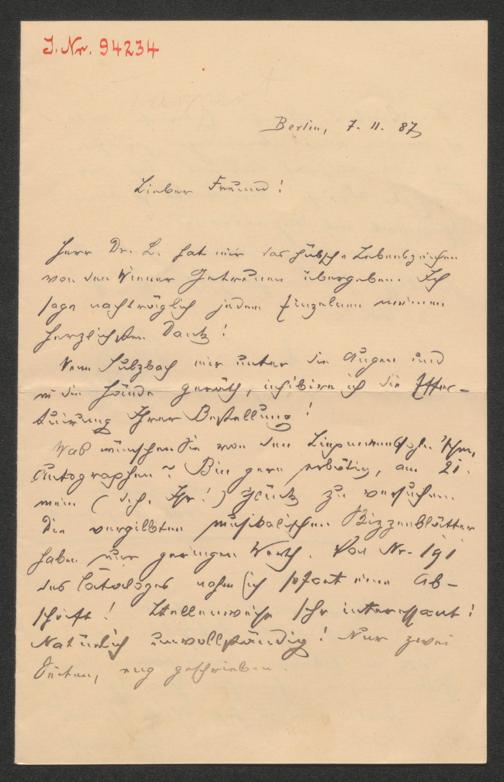 J. Nr. 94234
Berlin, 7. 11. 87
Lieber Freund!
Herr Dr. L. hat mir das hübsche Lebenszeichen
von den Wiener Getreuen übergeben. Ich
sage nachträglich jedem Einzelnen meinen
herzlichsten Dank!
Wenn Sulzbach mir unter die Augen und
in die Hände geräth, inhibire ich die Effec-
tuirung Ihrer Bestellung!
Was wünschen Sie von den
Autographen? Bin gern erbötig, am 21.
mein (d. h. Ihr!) Glück zu versuchen.
Die vergilbten musikalischen Skizzenblätter
haben nur geringen Werth. Von Nr. 191
des Cataloges nahm ich sofort eine Ab-
schrift! Stellenweise sehr interessant!
Natürlich unvollständig! Nur zwei
Seiten, eng geschrieben.